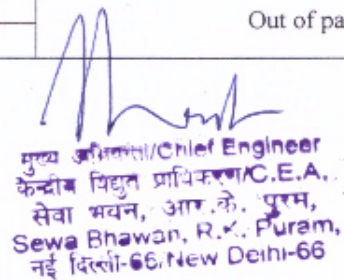 Out of pa
मुख्य अभियन्ता/Chief Engineer
केन्द्रीय विद्युत प्राधिकरण/C.E.A.
सेवा भवन, आर.के. पुरम,
Sewa Bhawan, R.K. Puram,
नई दिल्ली-66/New Delhi-66